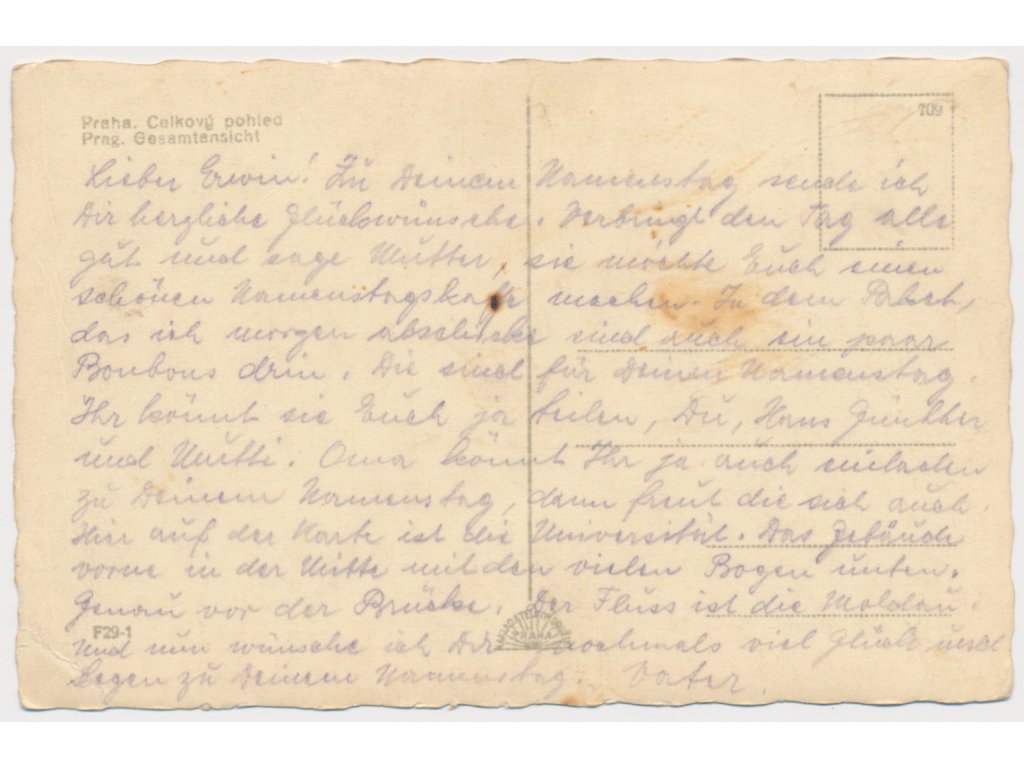 Praha. Celkový pohled
Prag. Gesamtansicht
709
Lieber Erwin! Zu Deinem Namenstag sende ich
Dir herzliche Glückwünsche. Verbringt den Tag alle
gut und sage Mutter, sie möchte Euch einen
schönen Namenstagskaffe machen. In dem Paket,
das ich morgen abschicke sind auch ein paar
Bonbons drin. Die sind für Deinen Namenstag.
Ihr könnt sie Euch ja teilen, Du, Hans Günther
und Mutti. Oma könnt Ihr ja auch einladen
zu Deinem Namenstag, dann freut die sich auch.
Hier auf der Karte ist die Universität. Das Gebäude
vorne in der Mitte mit den vielen Bogen unten.
Genau vor der Brücke. Der Fluss ist die Moldau.
F29-1
PRAHA
Und nun wünsche ich Dir nochmals viel Glück und
Segen zu Deinem Namenstag. Vater.